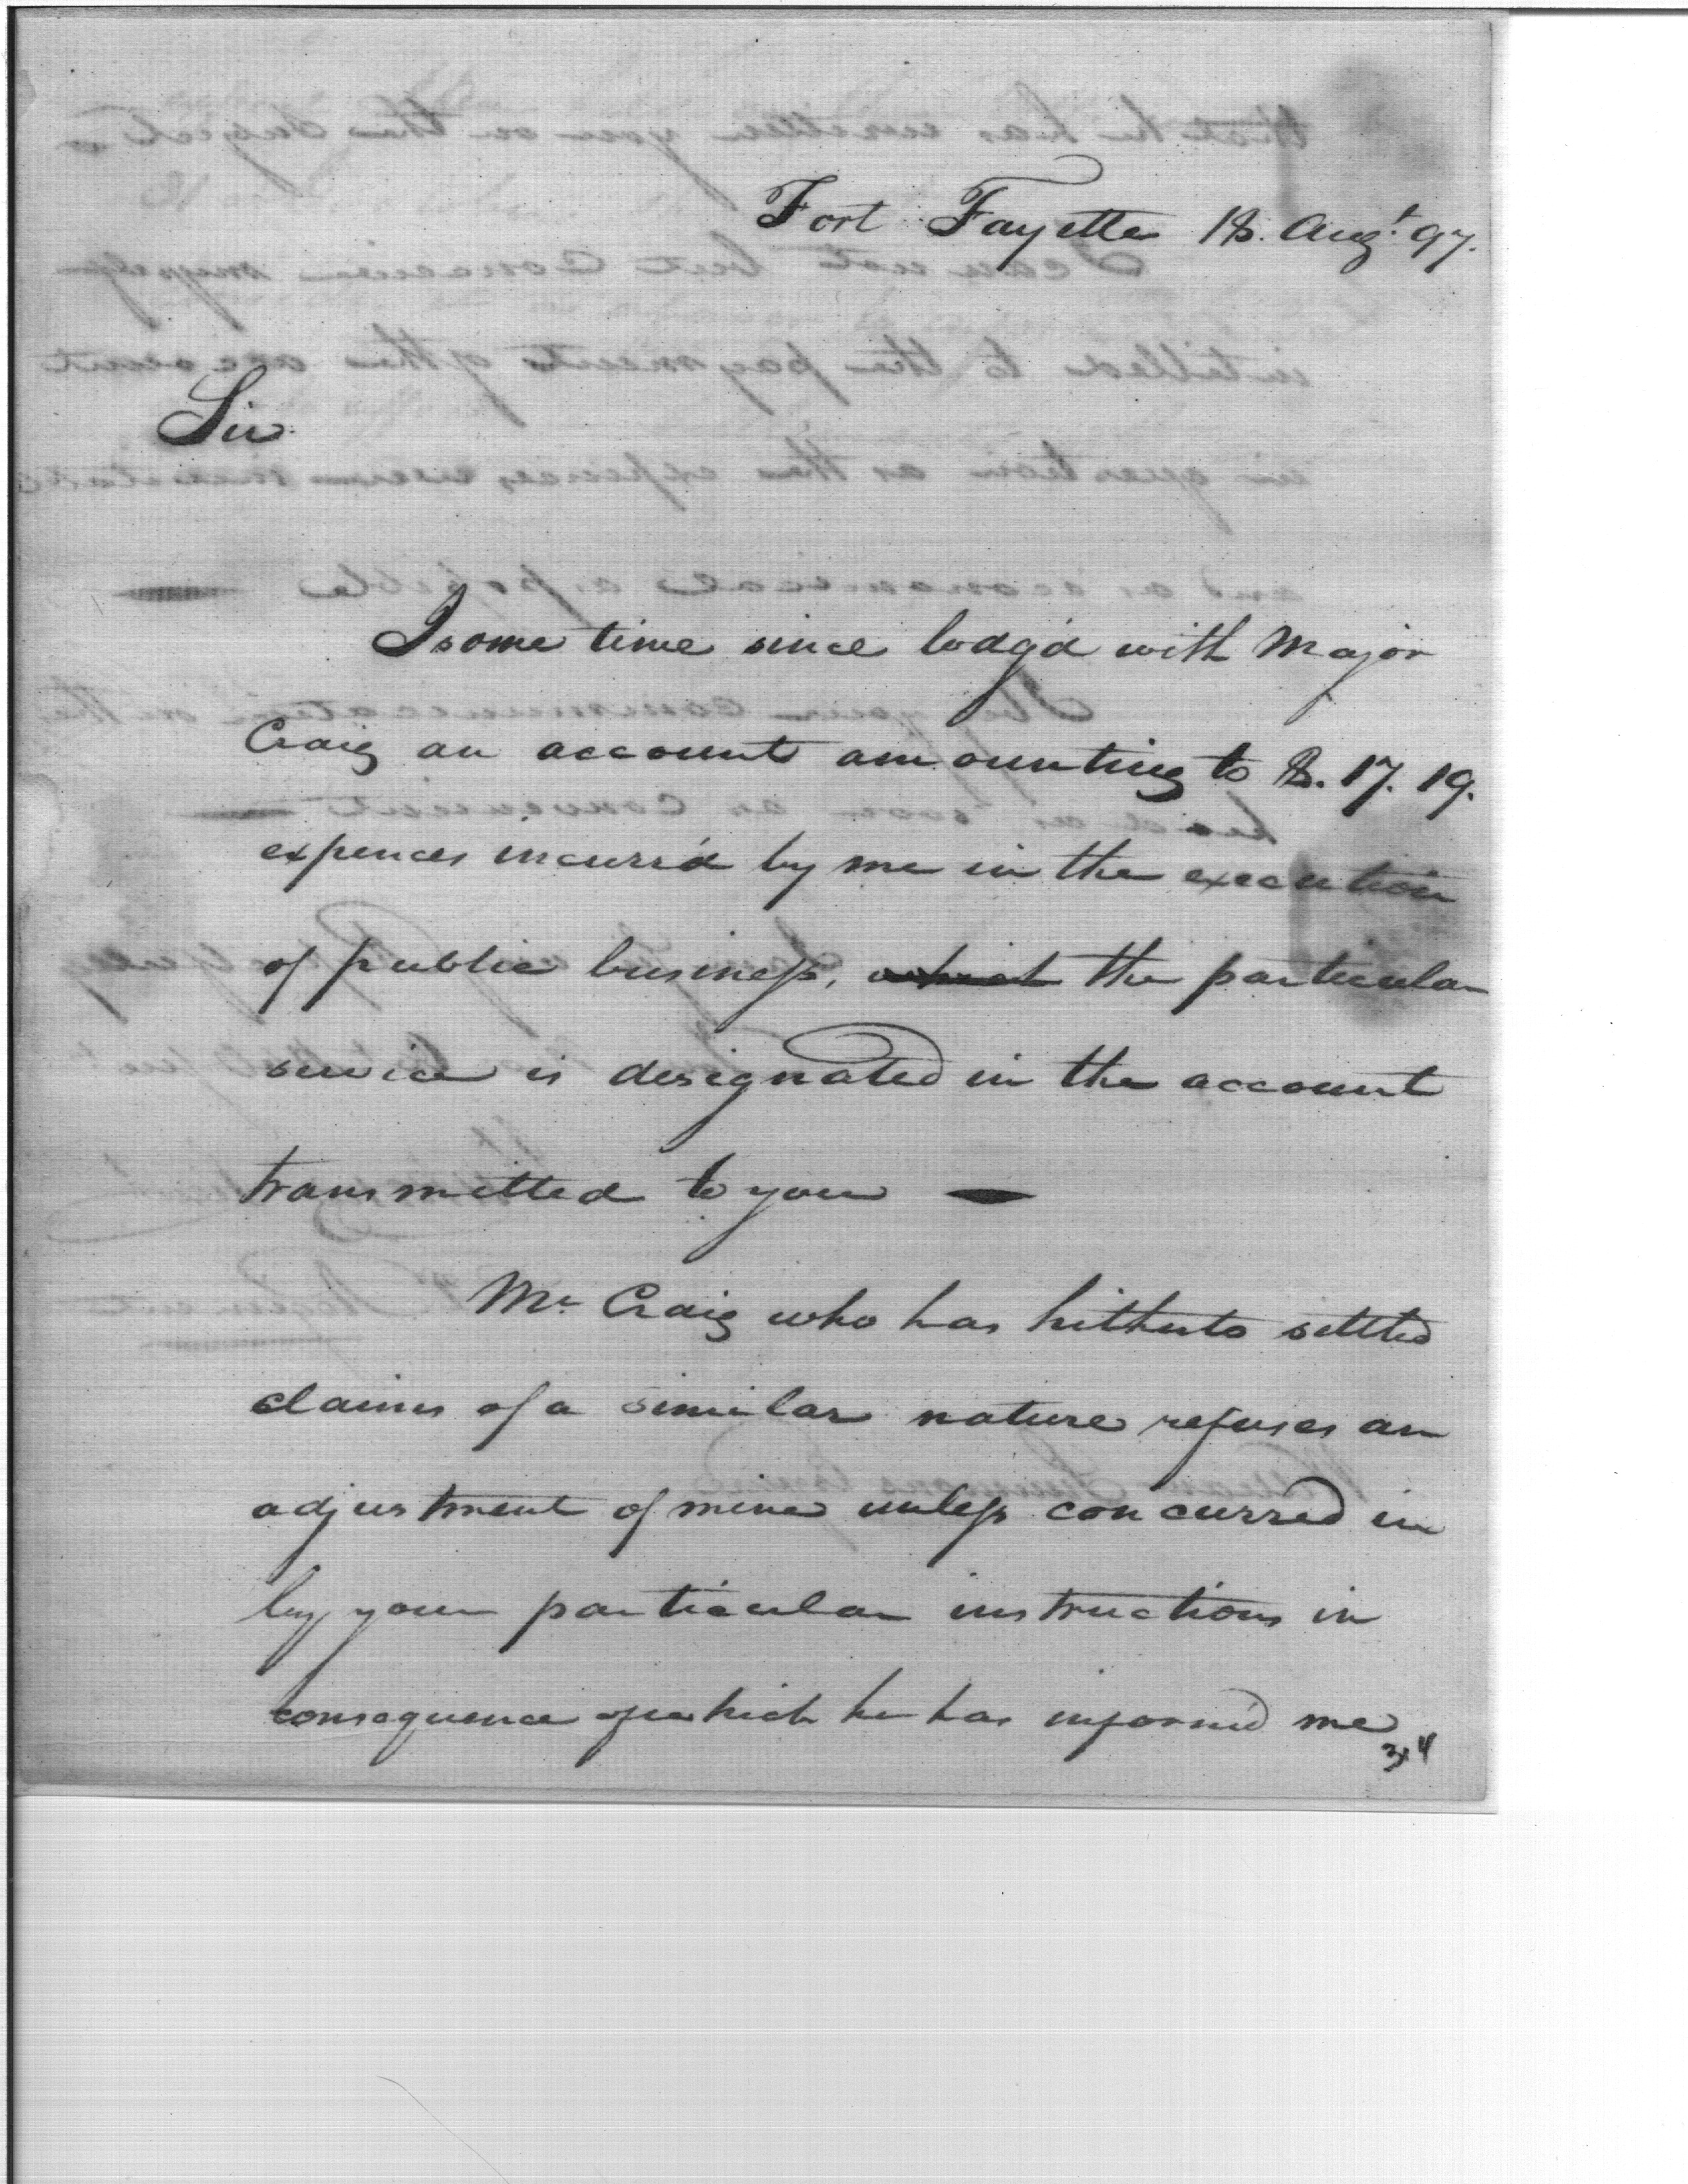 Fort Fayette 18. Augt. 97.
Sir
I some time since lodg'd with Major
Craig an account amounting to $. 17. 19.
expences incurr'd by me in the execution
of public business, which the particular
service is designated in the account
transmitted to you —
Mr. Craig who has hitherto settled
claims of a similar nature refuses an
adjustment of mine unless concurred in
by your particular instructions in
consequence of which he has inform'd me